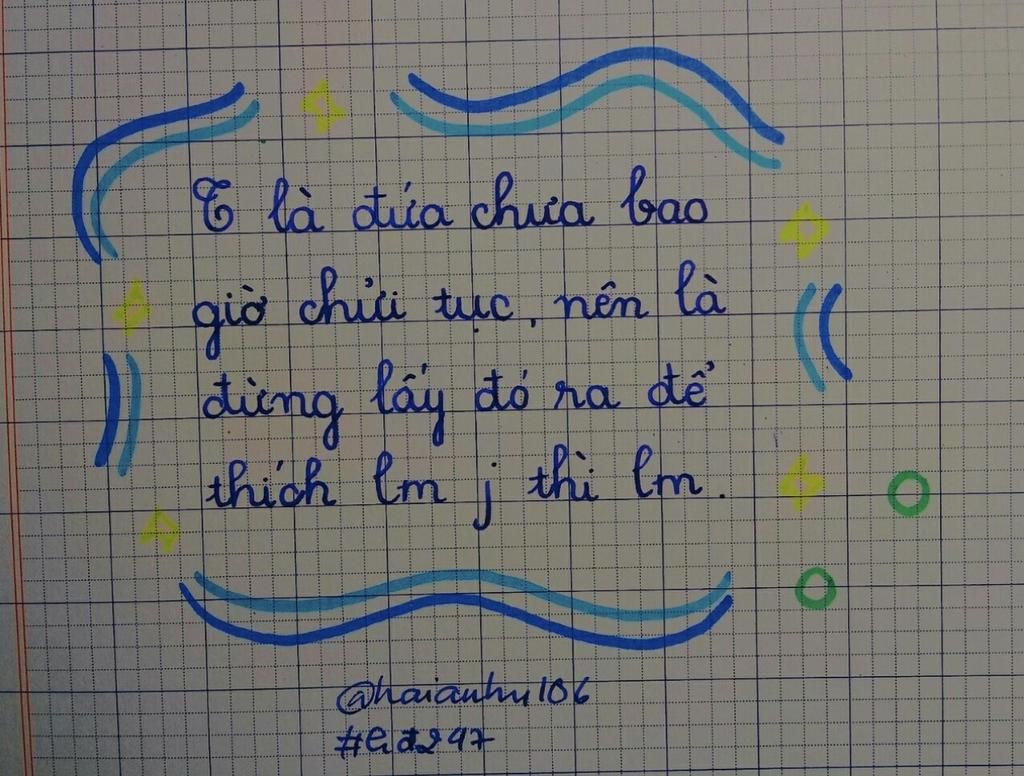 T là đứa chưa bao
giờ chửi tục, nên là
đừng lấy đó ra để
thích lm j thì lm.
@haianhu106